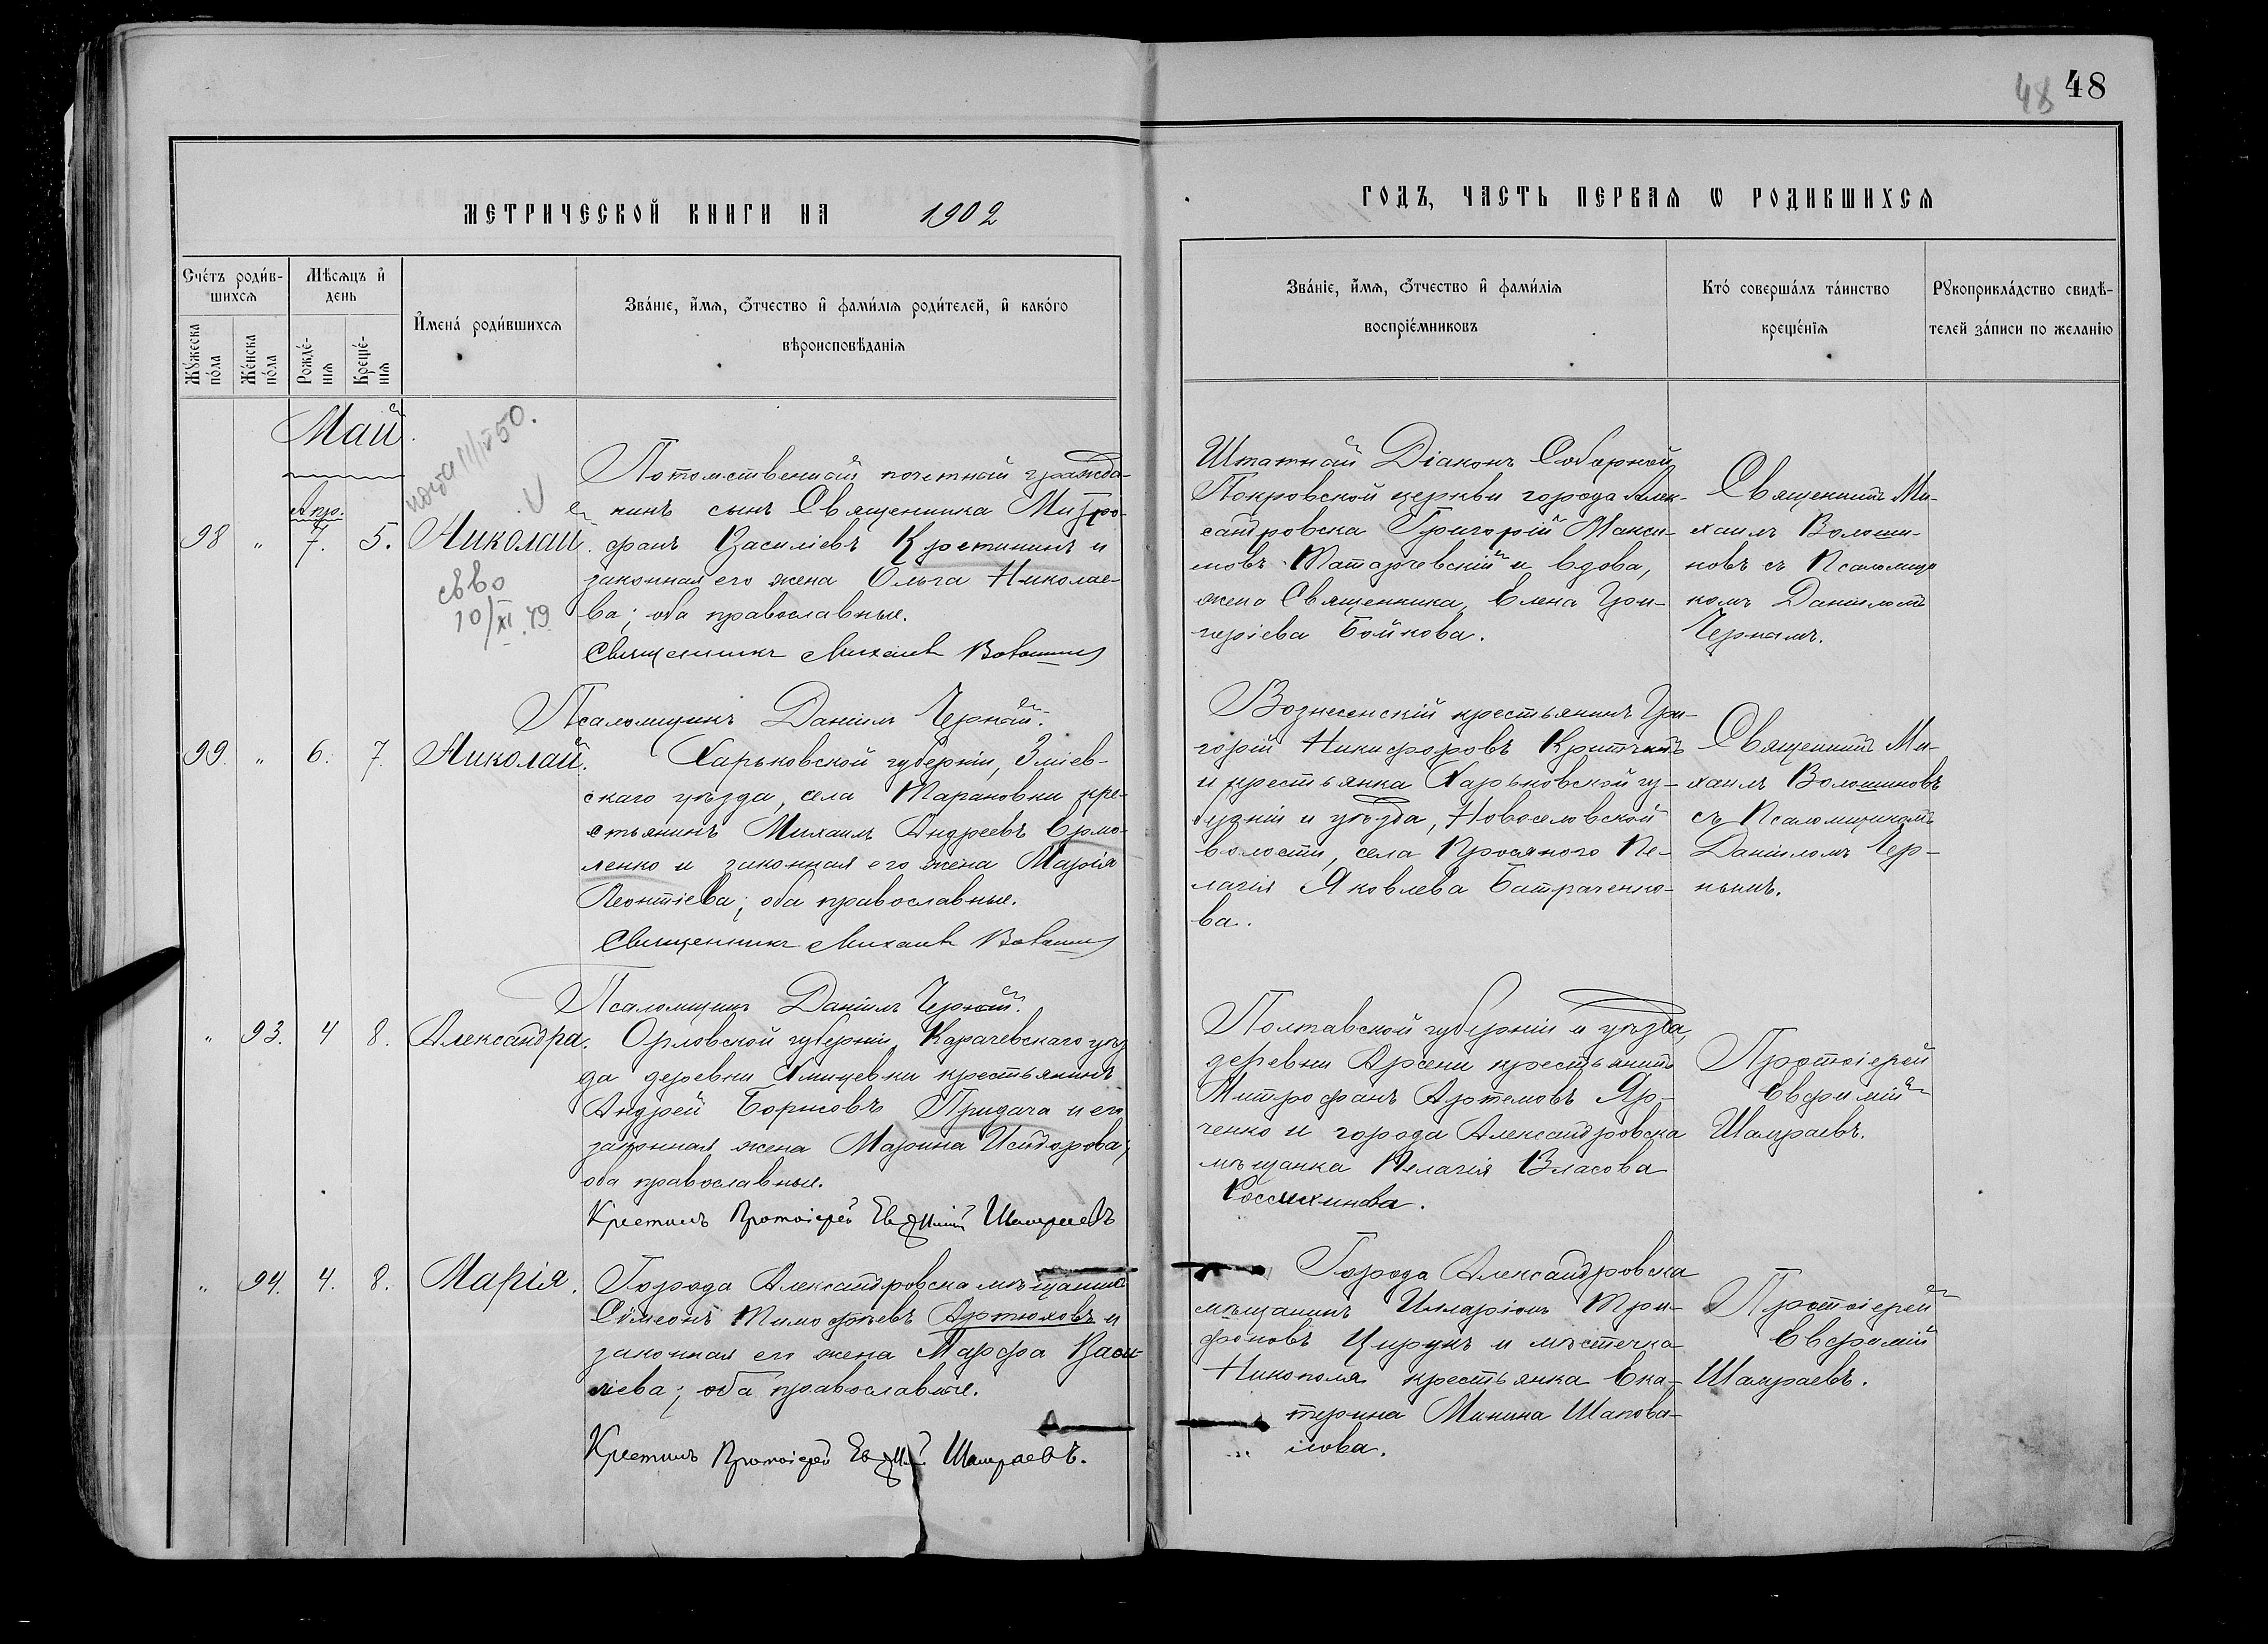 48 48
МЕТРИЧЕСКОЙ КНИГИ НА 1902
ГОДЪ, ЧАСТЬ ПЕРВАЯ Ѡ РОДИВШИХСЯ
Счетъ родив-
шихся
Мѣсяцъ и
день
Мужеска
пола
Женска
пола
Рожде-
нія
Креще-
нія
Имена родившихся
Званіе, имя, отчество и фамилія родителей, и какого
вѣроисповѣданія
Званіе, имя, отчество и фамилія
воспріемниковъ
Кто совершалъ таинство
крещенія
Рукоприкладство свидѣ-
телей записи по желанію
Май
50.
V
Апр.
98 " 7. 5. Николай.
св во
10/XI.49
Потомственный почетный гражда-
нинъ сынъ Священника Митро-
фанъ Василіевъ Кростининъ и
законная его жена Ольга Николае-
ва; оба православные.
Священникъ Михаилъ Волошинов
Псаломщикъ Даніилъ Черный.
Штатный Діаконъ Соборной
Покровской церкви города Алек-
сандровска Григорій Макси-
мовъ Татарчевскій и вдова,
жена Священника, Елена Гри-
горіева Бойкова.
Священникъ Ми-
хаилъ Волоши-
новъ съ Псаломщи
комъ Даніиломъ
Чернымъ.
99. " 6. 7. Николай.
Харьковской губерніи, Зміев-
скаго уѣзда, села Тарановки кре-
стьянинъ Михаилъ Андреевъ Ермо-
ленко и законная его жена Марія
Леонтіева; оба православные.
Священникъ Михаилъ Волошинов
Псаломщикъ Даніилъ Черный.
Вознесенскій крестьянинъ Гри-
горій Никифоровъ
и крестьянка Харьковской гу-
берніи и уѣзда, Новоселовской
волости, села Просяного Пе-
лагія Яковлева Батраченко-
ва.
Священникъ Ми-
хаилъ Волошиновъ
съ Псаломщикомъ
Даніиломъ Чер-
нымъ.
" 93. 4 8. Александра.
Орловской губерніи, Карачевскаго уѣз
да деревни Хмицевки крестьянинъ
Андрей Борисовъ Придача и его
законная жена Марина Исидорова;
оба православные.
Крестилъ Протоіерей Евфимій Шамраевъ
Полтавской губерніи и уѣзда,
деревни Арсени крестьянинъ
Митрофанъ Артемовъ Яр-
ченко и города Александровска
мѣщанка Пелагія Власова
Россихинова.
Протоіерей
Евфимій
Шамраевъ.
" 94. 4. 8. Марія.
Города Александровска мѣщанинъ
Сѵмеонъ Тимофѣевъ Артюховъ и
законная его жена Марфа Васи-
ліева; оба православные.
Крестилъ Протоіерей Евфимій Шамраевъ.
Города Александровска
мѣщанинъ Иларіонъ Три-
фоновъ Цирукъ и мѣстечка
Никополя крестьянка Ека-
терина Минина Шапова-
лова.
Протоіерей
Евфимій
Шамраевъ.